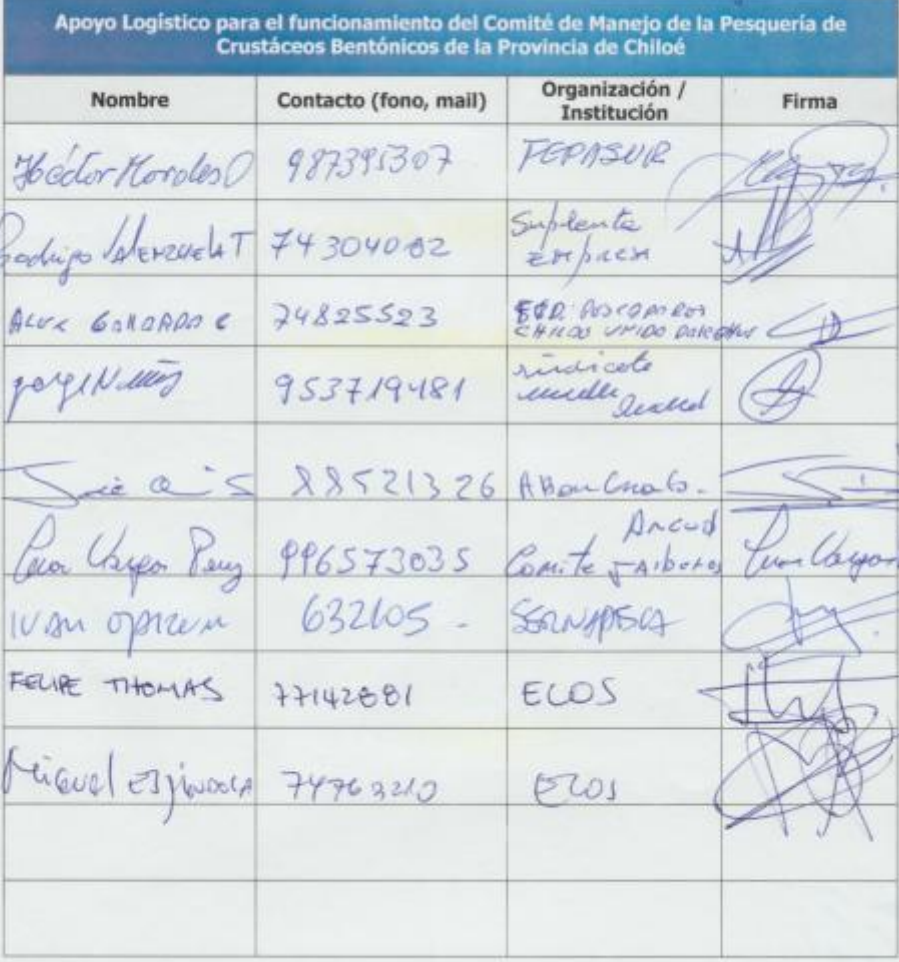 Apoyo Logístico para el funcionamiento del Comité de Manejo de la Pesquería de
Crustáceos Bentónicos de la Provincia de Chiloé
Nombre Contacto (fono, mail) Organización / Institución Firma
Héctor Morales O 987395307 FEPASUR
Rodrigo Valenzuela T 74304082 Suplente
Empresa
74825523
CHILOE UNIDO
953719481 sindicato
88521326
Ancud
Vargas 996573035 Comite Jaibas Vargas
IVAN OPAZO 632105 - SERNAPESCA
FELIPE THOMAS 77142881 ECOS
Miguel Espíndola 74763210 ECOS